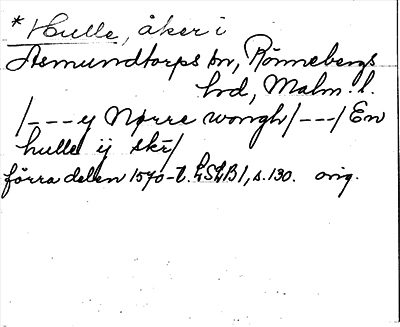 * Hulle, åker i
Asmundtorps sn, Rönnebergs
hd, Malm. l.
/---y Nørre wongh/---/ En
hulle ij skr/
förra delen 1570-t. LSLB 1, s. 130. orig.